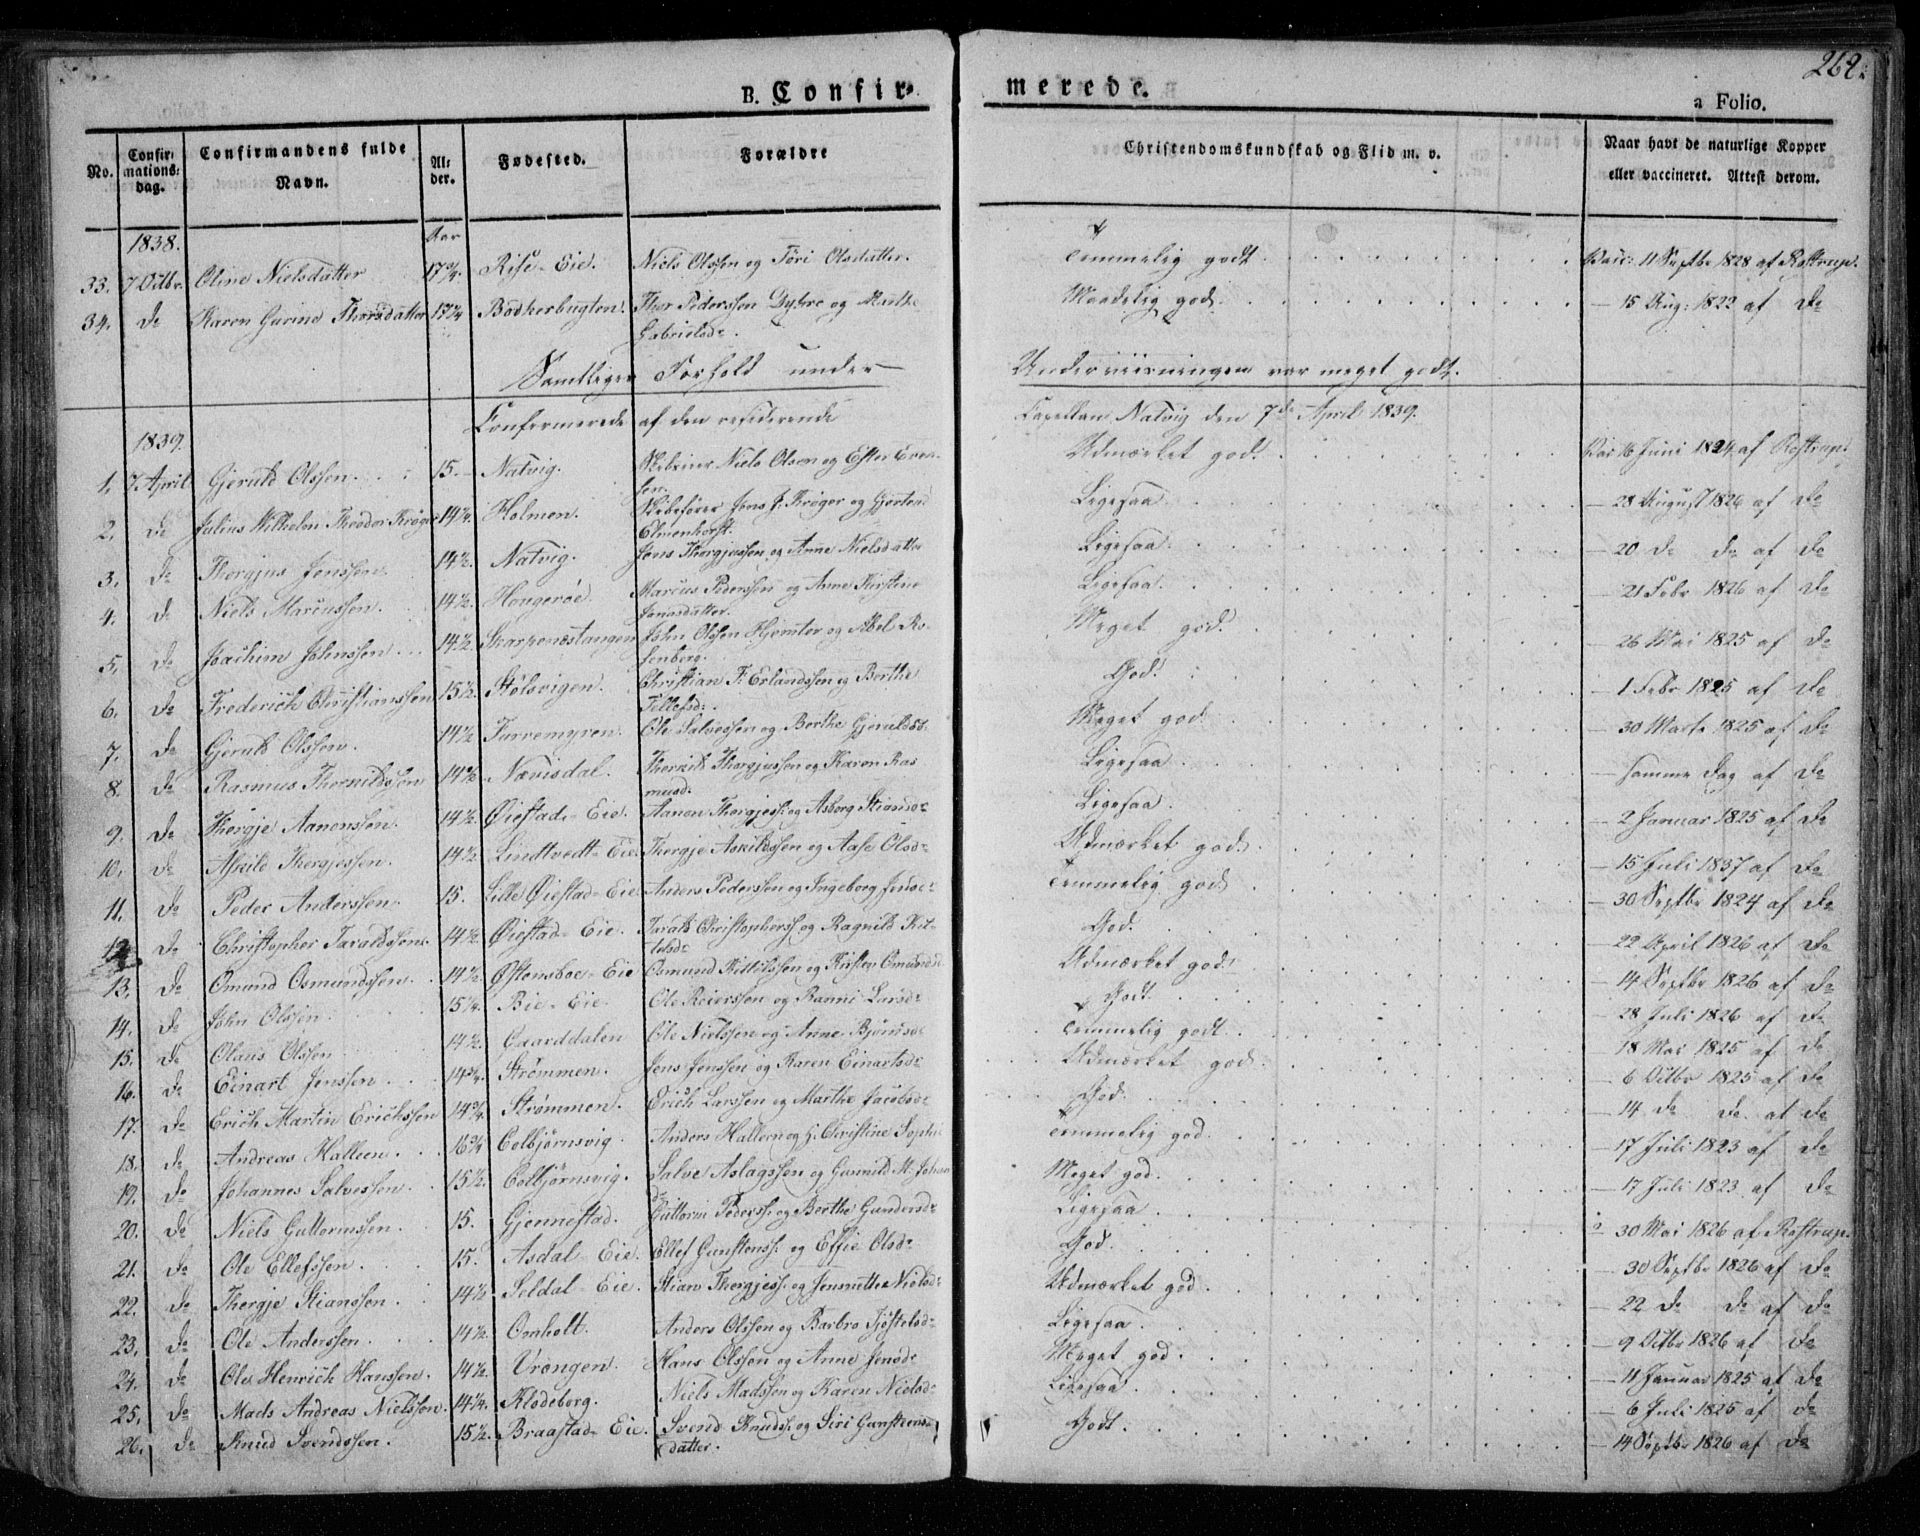 262.
B. Confir- merede.
a Folio.
No. Confirmationsdag. Confirmandens fulde Navn. Alder. Fødested. Forældre Christendomskundskab og Flid m. v. Naar havt de naturlige Kopper eller vaccineret. Attest derom.
1838. Aar
33. 7 Octbr. Oline Nielsdatter 17 3/4. Rise-Eie. Niels Olssen og Töri Olsdatter. Temmelig godt. Vac: 11 Septbr 1828 af Rostrup.
34. do Karen Gurine Thorsdatter 17 1/4 Bödkerbugten. Thor Pederssen Dyhre og Marthe Gabrielsdr. Maadelig god. — 15 Aug: 1822 af do
Samtliges Forhold under Underviisningen var meget godt.
Confirmerede af den residerende Capellan Natvig den 7de April 1839.
1839.
1. 7 April Gjeruld Olssen. 15. Natvig. Skibeier Niels Olsen og Ester Evensen. Udmærket god. Vac 16 Juni 1824 af Rostrup.
2. do Julius Wilhelm Theodor Krøger 14 1/2. Holmen. Skibsfører Jens J. Krøger og Gjertrud Elmenhorst. Ligesaa — 28 August 1826 af do
3. do Thorgjus Jenssen 14 1/2. Natvig. Jens Thorgjussen og Anne Nielsdatter Ligesaa. — 20 do do af do
4. do Niels Marcussen. 14 1/2. Hougerøe. Marcus Pederssen og Anne Kirstine Jensdatter. Ligesaa. — 21 Febr 1826 af do
5. do Joachim Johnssen 14 1/2. Skarpenæstangen John Olssen Hjemter og Abel Rosenberg. Meget god. — 26 Mai 1825 af do
6. do Frederich Christianssen 15 1/2. Stölsvigen. Christian F. Erlandssen og Berthe Tellefsd: God. — 1 Febr 1825 af do
7. do Gjeruld Olssen. 14 1/2 Furremyren. Ole Salvessen og Berthe Gjeruldsd. Meget god — 30 Marts 1825 af do
8. do Rasmus Thorkildssen 14 1/2 Nævisdal. Thorkild Thorgjussen og Karen Rasmusd. Ligesaa — samme Dag af do
9. do Thorgje Aanonssen. 14 1/2 Øiestad-Eie. Aanon Thorgjess. og Asborg Stiansdr Ligesaa. — 2 Januar 1825 af do
10. do Askild Thorgjessen. 14 1/2 Lindtvedt-Eie. Thorgje Askildssen og Aase Olsdr Udmærket god. — 15 Juli 1837 af do
11. do Peder Anderssen. 15. Lille Øiestad-Eie Anders Pederssen og Ingeborg Jensdr Temmelig god — 30 Septbr 1824 af do
12 do Christopher Taraldssen. 14 1/2. Øiestad-Eie. Tarald Christopherss og Ragnild Kittelsdr God. — 22 April 1826 af do
13. do Omund Osmundssen. 14 1/2. Østensboe-Eie Osmund Kittilssen og Kirsten Omundsd Udmærket god. — 14 Septbr 1826 af do
14. do John Olssen 15 1/4. Bie-Eie. Ole Reierssen og Ranni Larsdr Godt. — 28 Juli 1826 af do
15. do Olaus Olssen 14 1/2. Gaarddalen Ole Nielssen og Anne Bjørnsdr Temmelig godt. — 18 Mai 1825 af do
16. do Einart Jenssen 14 3/4. Strømmen. Jens Jenssen og Karen Einartsdr Udmærket god. — 6 Octbr 1825 af do
17. do Erich Martin Erichssen 14 3/4. Strømmen. Erich Larssen og Marthe Jacobsdr God. — 14 do do af do
18. do Andreas Halleen. 16 3/4 Colbjørnsvig. Anders Halleen og J. Christine Sophie Temmelig god. — 17 Juli 1823 af do
19. do Johannes Salvessen. 15 1/2. Colbjørnsvig. Salve Aslagssen og Gunnild M. Johansdr Meget god. — 17 Juli 1823 af do
20. do Niels Guttormssen. 15. Gjennestad. Guttorm Pederss. og Berthe Gundersdr Ligesaa. — 30 Mai 1826 af Rostrup.
21. do Ole Ellefssen. 15. Asdal-Eie. Ellef Gunstenss. og Effie Olsdr God. — 30 Septbr 1826 af do
22. do Thorgje Stianssen. 14 1/2 Seldal-Eie. Stian Thorgjess. og Jensmitte Nielsdr Udmærket god. — 22 do do af do
23. do Ole Anderssen. 14 1/2. Omholt. Anders Olssen og Barbro Tjöstelsdr Ligesaa. — 9 Octbr 1826 af do
24. do Ole Henrich Hanssen. 14 1/2. Vrengen. Hans Olssen og Anne Jensdr Meget god. — 11 Januar 1825 af do
25. do Mads Andreas Nielssen. 14 1/4. Klodeborg. Niels Madssen og Karen Nielsdr Ligesaa. — 6 Juli 1825 af do
26. do Knud Svendssen. 15 1/2. Braastad-Eie. Svend Knudss. og Siri Gunstensdatter. Godt. — 14 Septbr 1826 af do